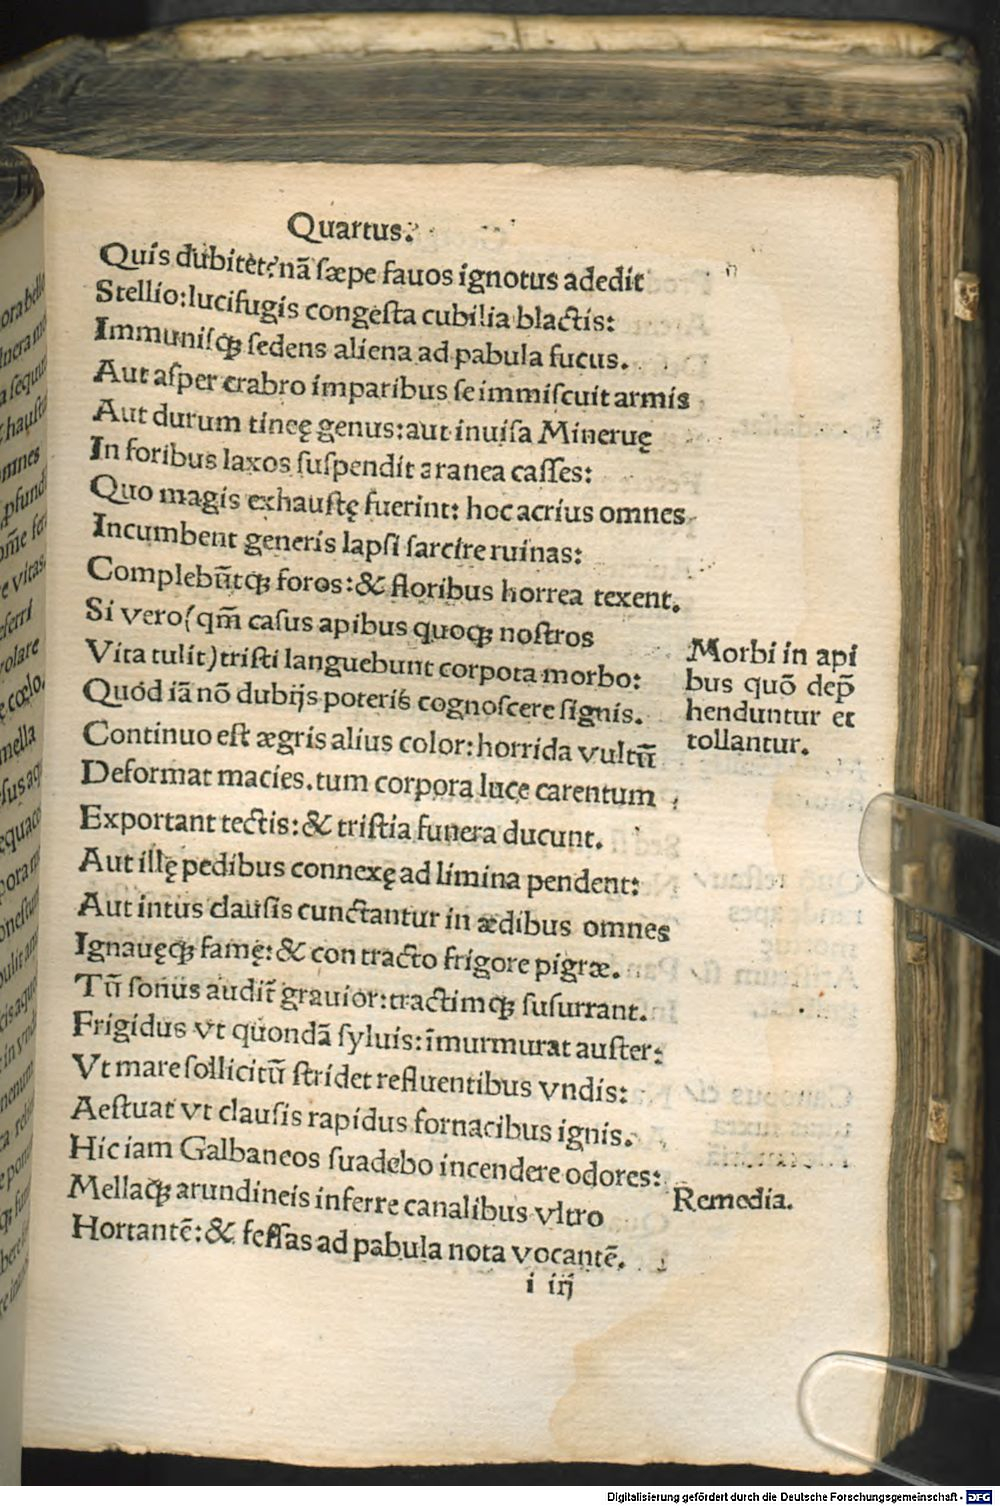 Quartus.
Quis dubitet? nã sæpe fauos ignotus adedit
Stellio: lucifugis congesta cubilia blactis:
Immunisqȝ sedens aliena ad pabula fucus.
Aut asper crabro imparibus se immiscuit armis
Aut durum tineę genus: aut inuisa Mineruę
In foribus laxos suspendit aranea casses:
Quo magis exhaustę fuerint: hoc acrius omnes
Incumbent generis lapsi sarcire ruinas:
Complebũtqȝ foros: & floribus horrea texent.
Si vero (qm̃ casus apibus quoqȝ nostros
Vita tulit) tristi languebunt corpora morbo:
Quod iã nõ dubijs poteris cognoscere signis.
Continuo est ægris alius color: horrida vultũ
Deformat macies. tum corpora luce carentum
Exportant tectis: & tristia funera ducunt.
Aut illę pedibus connexę ad limina pendent:
Aut intus clausis cunctantur in ædibus omnes
Ignauęqȝ famę: & contracto frigore pigræ.
Tũ sonus audit̃ grauior: tractimqȝ susurrant.
Frigidus vt quondã syluis: ĩmurmurat auster:
Vt mare sollicitũ stridet refluentibus vndis:
Aestuat vt clausis rapidus fornacibus ignis.
Hic iam Galbaneos suadebo incendere odores:
Mellaqȝ arundineis inferre canalibus vltro
Hortantẽ: & fessas ad pabula nota vocantẽ.
i iij
Morbi in api
bus quõ dep̃
henduntur et
tollantur.
Remedia.
Digitalisierung gefördert durch die Deutsche Forschungsgemeinschaft - DFG